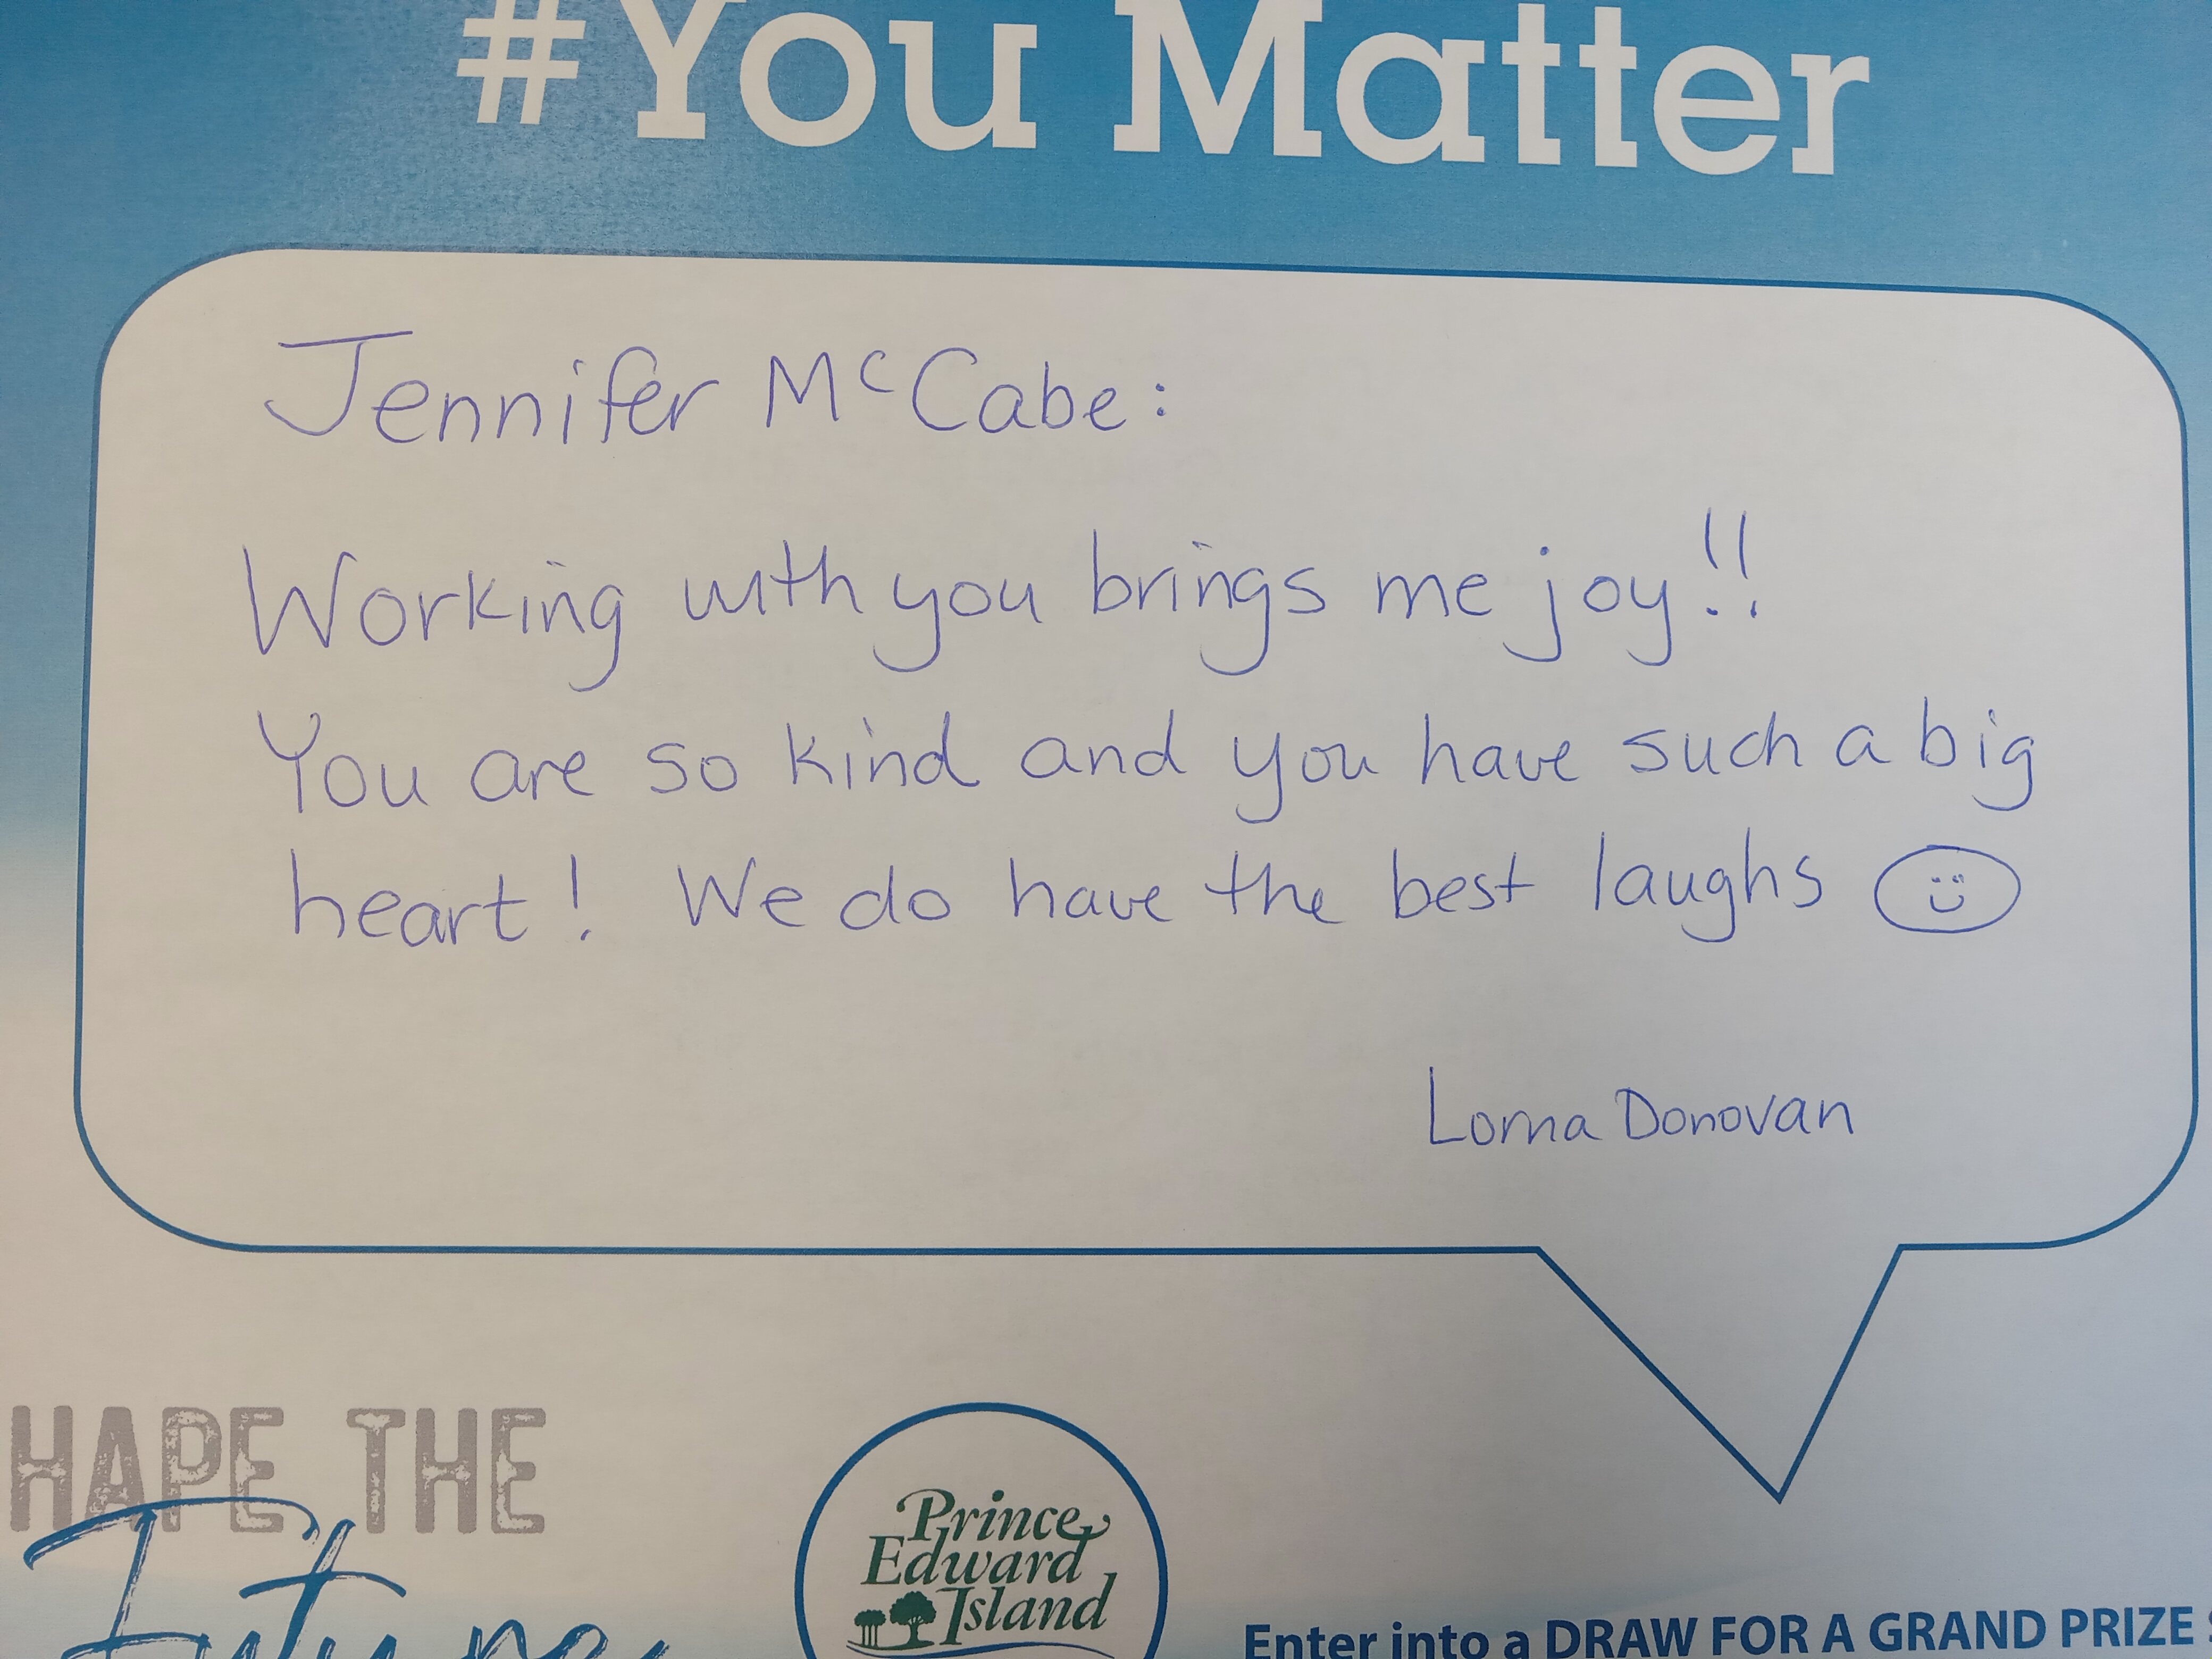 #You Matter
Jennifer McCabe:
Working with you brings me joy!!
You are so kind and you have such a big
heart! We do have the best laughs
Lorna Donovan
HAPE THE
Future
Prince
Edward
Island
Enter into a DRAW FOR A GRAND PRIZE